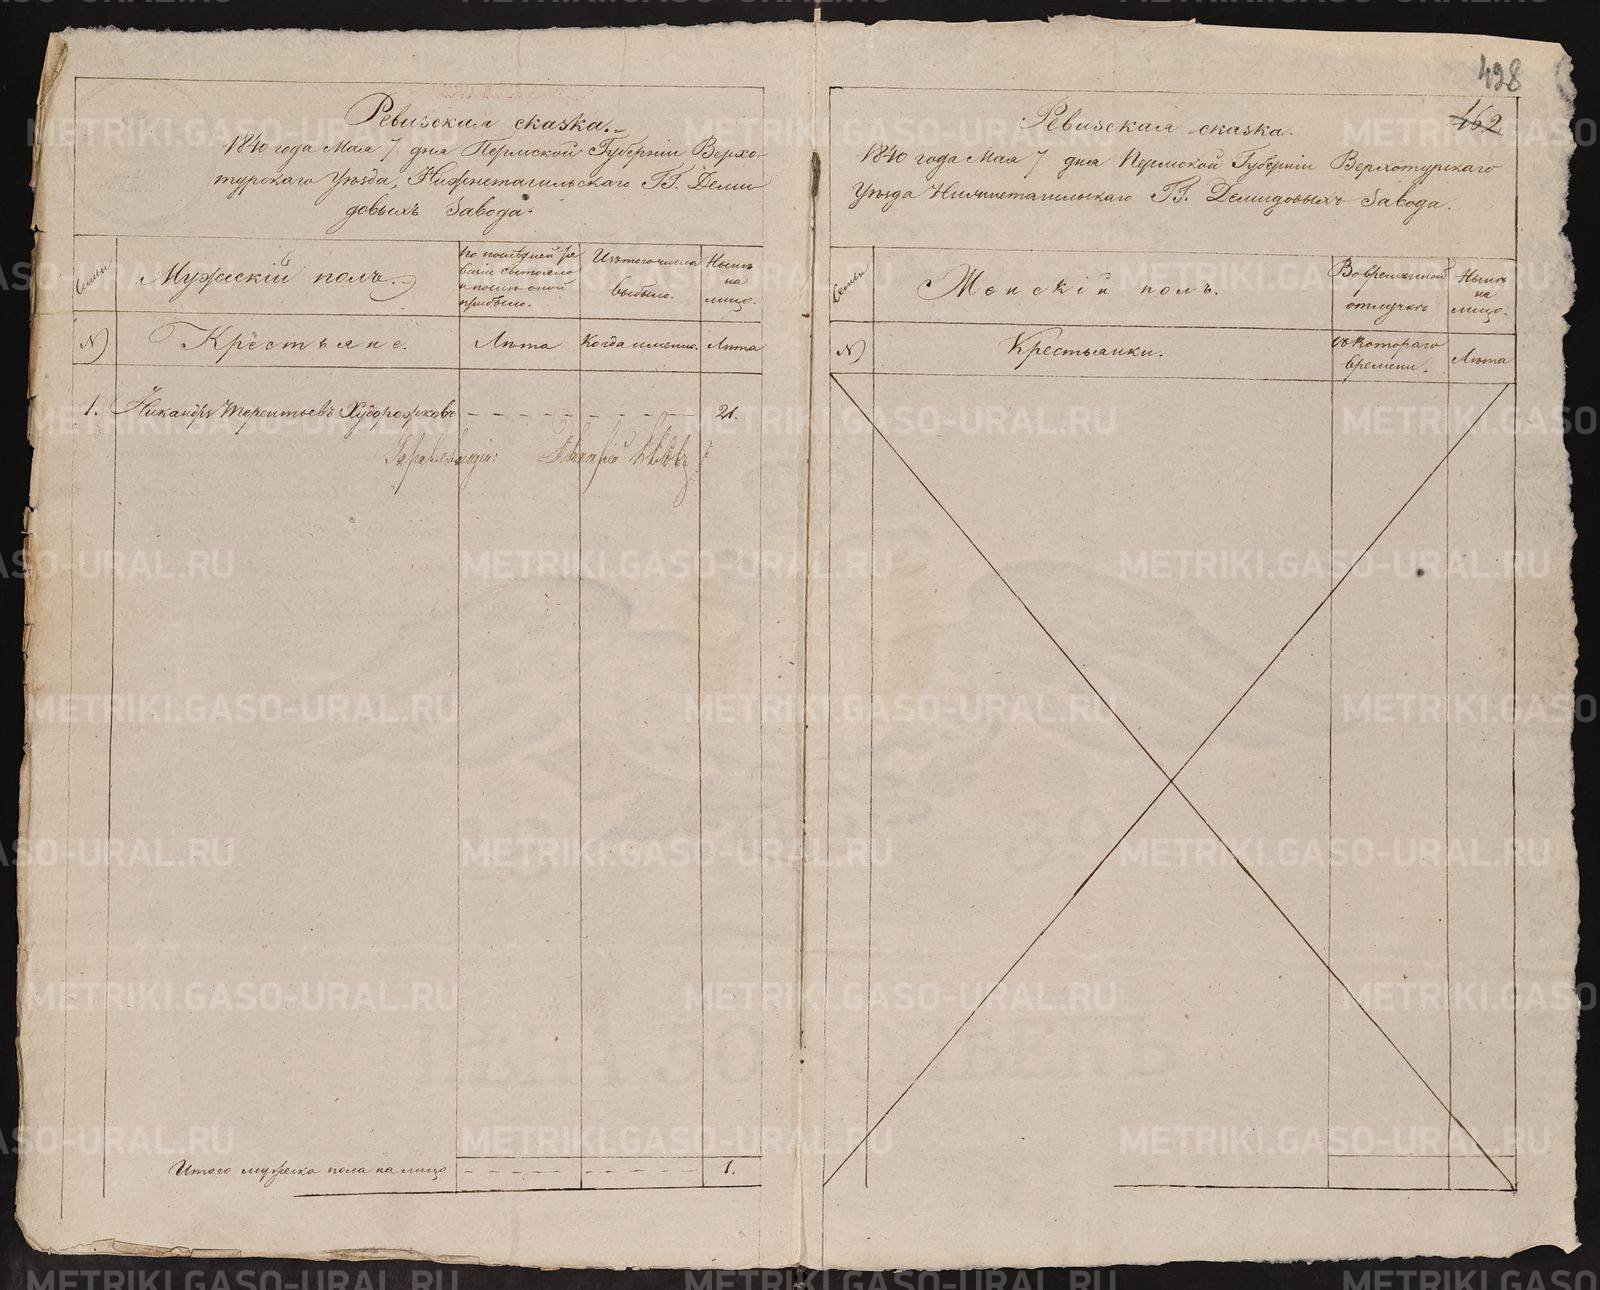 Ревизская сказка.
1840 года Мая 7 дня Пермской Губерніи Верхо-
турскаго Уѣзда, Нижнетагильскаго ГГ. Деми
довыхъ Завода.
Семьи
Мужескій полъ.
по послѣдней ре
визіи состояло
и послѣ оной
прибыло.
Изъ того числа
выбыло.
Нынѣ
на
лицо.
N
Крестьяне.
Лѣта
Когда именно.
Лѣта
1. Никандръ Терентьевъ Худорожковъ 21.
Итого мужеска пола на лицо 1.
498
462
Ревизская сказка.
1840 года Мая 7 дня Пермской Губерніи Верхотурскаго
Уѣзда Нижнетагильскаго ГГ. Демидовыхъ Завода.
Семьи
Женскій полъ.
Во временной
отлучкѣ
Нынѣ
на
лицо.
N
Крестьянки.
съ котораго
времени.
Лѣта
METRIKI.GASO-URAL.RU